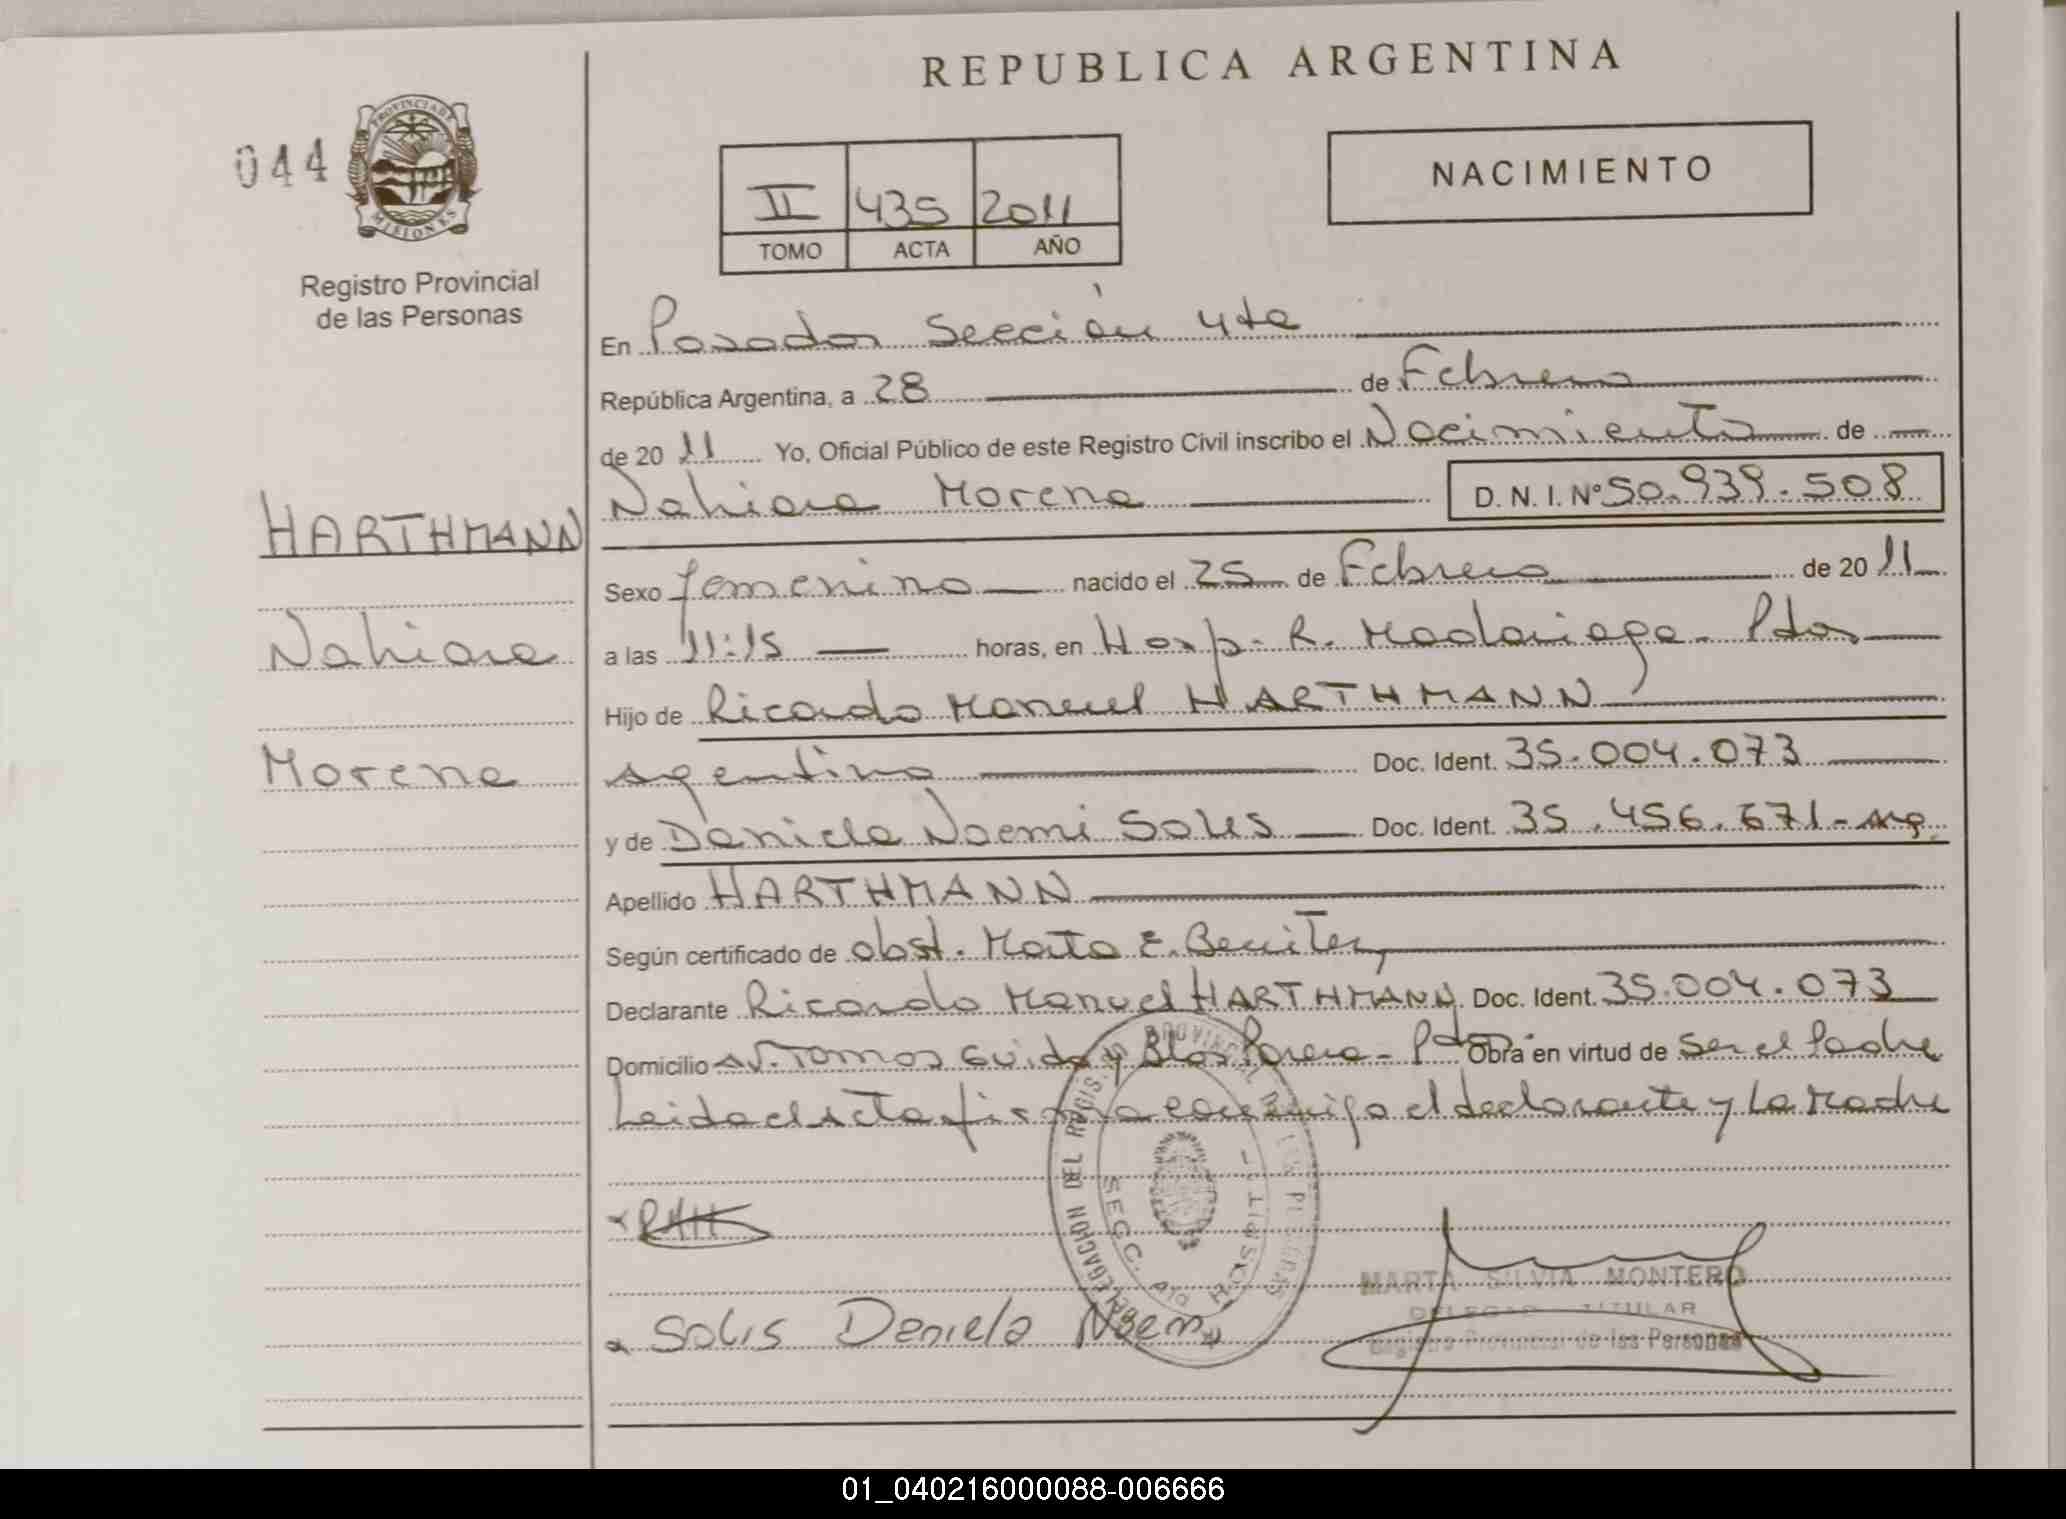 REPUBLICA ARGENTINA
044
PROVINCIA DE
MISIONES
Registro Provincial
de las Personas
II 435 2011
TOMO ACTA AÑO
NACIMIENTO
En Posadas Sección 4ta
República Argentina, a 28 de Febrero
de 20 11 Yo, Oficial Público de este Registro Civil inscribo el Nacimiento de
Nahiara Morena D. N. I. Nº 50.939.508
HARTHMANN
Nahiara
Morena
Sexo femenino nacido el 25 de Febrero de 20 11
a las 11:15 horas, en Hosp. R. Madariaga - Pdas
Hijo de Ricardo Manuel HARTHMANN
Argentino Doc. Ident. 35.004.073
y de Daniela Noemi SOLIS Doc. Ident. 35.456.671 - Arg.
Apellido HARTHMANN
Según certificado de obst. Marta E. Benitez
Declarante Ricardo Manuel HARTHMANN Doc. Ident. 35.004.073
Domicilio Av. Tomas Guido y Blas Parera - Pdas Obra en virtud de ser el Padre
Leida el Acta firma conmigo el declarante y La Madre
x RMH
x SOLIS Daniela Noemi
MARTA SILVIA MONTERO
DELEGAD TITULAR
Registro Provincial de las Personas
01_040216000088-006666